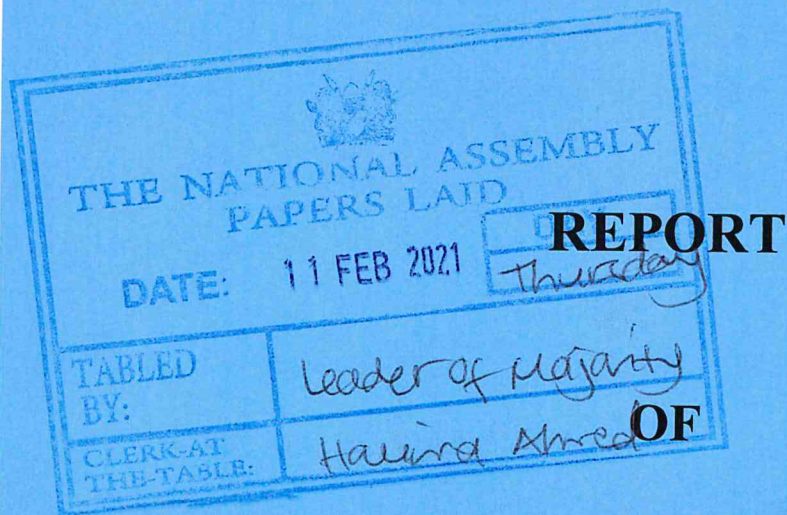 THE NATIONAL ASSEMBLY
PAPERS LAID
REPORT
DATE: 11 FEB 2021
Thursday
TABLED BY:
Leader of Majority
CLERK-AT THE-TABLE:
Ahmed
OF